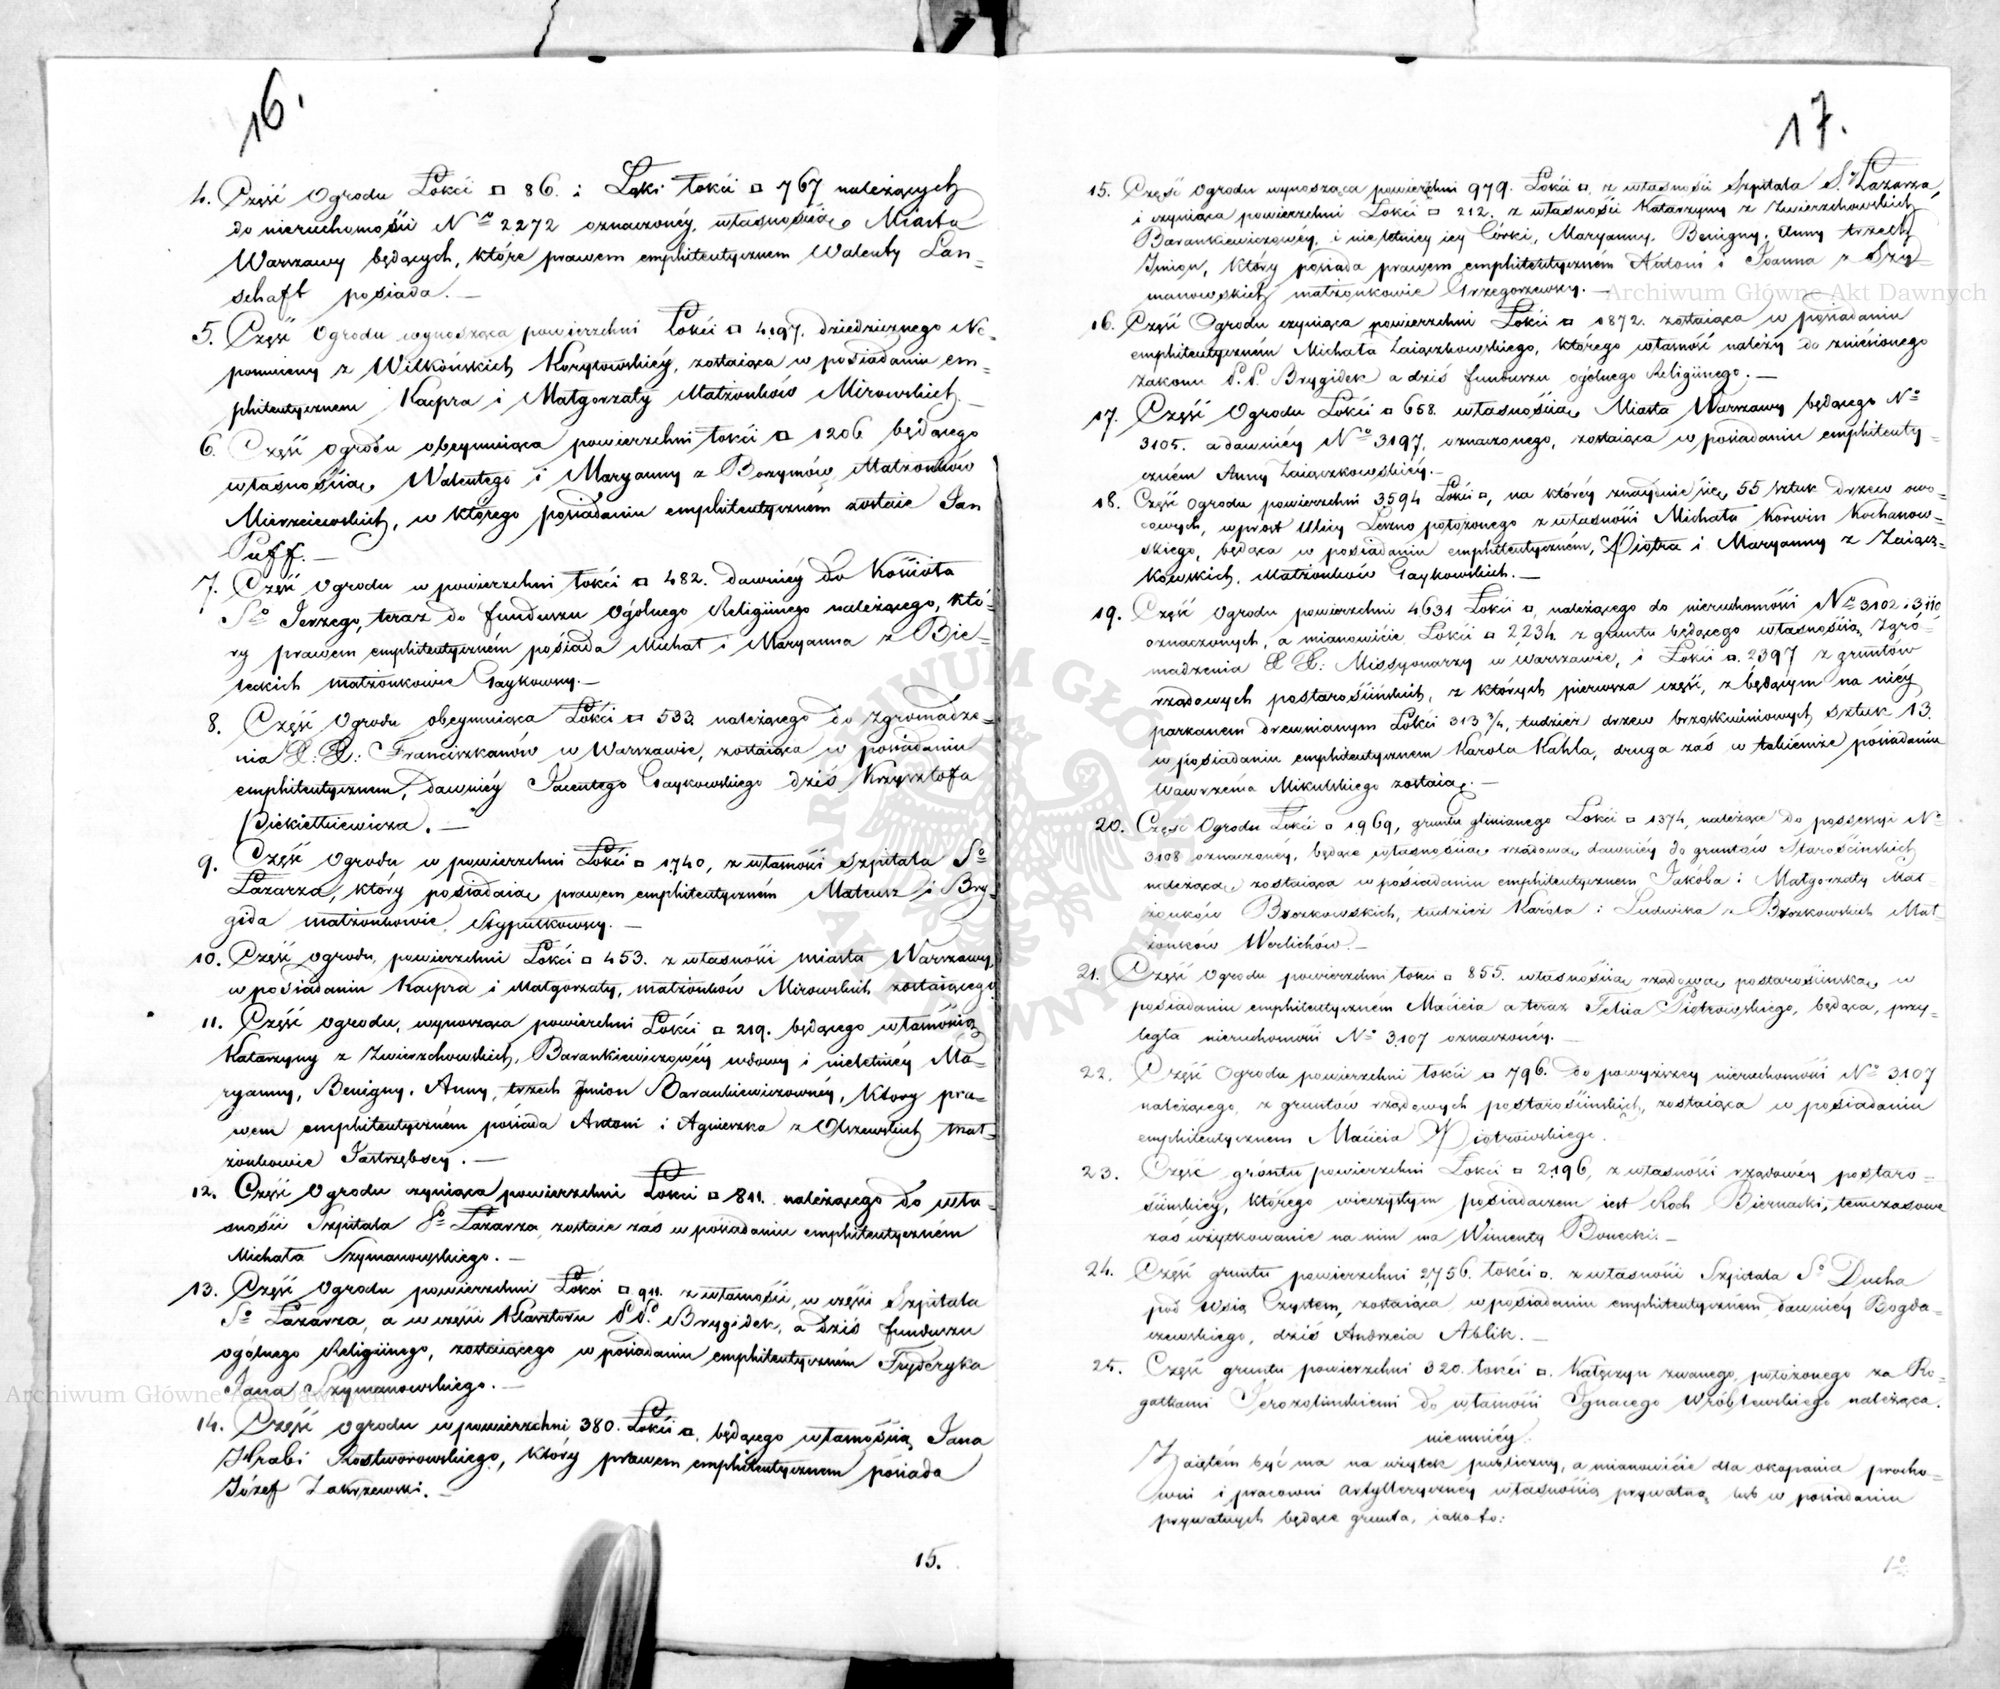 16.
4. Część Ogrodu Łokci □ 86. i Łąki łokci □ 767 należących
do nieruchomości Nro 2272 oznaczonéy, własnością Miasta
Warszawy będących, które prawem emphiteutycznem Walenty Lan=
schaft posiada. —
5. Część Ogrodu wynosząca powierzchni Łokci □ 4197. dziedzicznego Ne=
pomuceny z Wilkońskich Korytowskiéy, zostaiąca w posiadaniu em=
phiteutycznem Kacpra i Małgorzaty Małżonków Mirowskich. —
6. Część ogrodu obeymuiąca powierzchni łokci □ 1206 będącego
własnością Walentego i Maryanny z Bożymów Małżonków
Mierzeiewskich, w którego posiadaniu emphiteutyczném zostaie Jan
Puff. —
7. Część Ogrodu w powierzchni łokci □ 482. dawniéy do Kościoła
Sgo Jerzego, teraz do funduszu Ogólnego Religiinego należącego, któ=
ry prawem emphiteutyczném posiada Michał i Maryanna z Bie=
leckich małżonkowie Gaykowscy. —
8. Część Ogrodu obeymuiąca Łokci □ 533. należącego do Zgromadze=
nia X. X: Franciszkanów w Warszawie, zostaiąca w posiadaniu
emphiteutycznem, dawniéy Jacentego Gaykowskiego dziś Krzysztofa
Piekiełkiewicza. —
9. Część Ogrodu w powierzchni Łokci □ 1740, z własności Szpitala Sgo
Łazarza, który posiadaią prawem emphiteutyczném Mateusz i Bry=
gida małżonkowie Stypułkowscy. —
10. Część ogrodu, powierzchni Łokci □ 453. z własności miasta Warszawy,
w posiadaniu Kacpra i Małgorzaty, małżonków Mirowskich zostaiącego
11. Część ogrodu, wynosząca powierzchni Łokci □ 219. będącego własnością
Katarzyny z Zwierzchowskich, Barankiewiczowéy wdowy i nieletniéy Ma=
ryanny, Benigny, Anny, trzech Imion Barankiewiczownéy, Który pra=
wem emphiteutyczném posiada Antoni i Agnieszka z Olszewskich Mał=
żonkowie Jastrzębscy. —
12. Część Ogrodu czyniąca powierzchni Łokci □ 811. należącego do wła=
sności Szpitala Sgo Łazarza, zostaie zaś w posiadaniu emphiteutyczném
Michała Szymanowskiego. —
13. Część Ogrodu powierzchni Łokci □ 911. z własności, w części Szpitala
Sgo Łazarza, a w części Klasztoru P.P. Brygidek, a dziś funduszu
ogólnego Religiinego, zostaiącego w posiadaniu emphiteutyczném Fryderyka
Jana Szymanowskiego. —
14. Część Ogrodu w powierzchni 380. Łokci □, będącego własnością Jana
Hrabi Rostworowskiego, Który prawem emphiteutycznem posiada
Józef Zakrzewski. —
15.
17.
15. Część Ogrodu wynosząca powierzchni 979. Łokci □, z własności Szpitala S. Łazarza,
i czyniąca powierzchni Łokci □ 212. z własności Katarzyny z Zwierzchowskich
Barankiewiczowéy, i nieletniey iey Córki, Maryanny, Benigny, Anny trzech
Imion, Który posiada prawem emphiteutyczném Antoni i Joanna z Szy=
manowskich małżonkowie Grzegorzewscy. —
16. Część Ogrodu czyniąca powierzchni Łokci □ 1872. zostaiąca w posiadaniu
emphiteutyczném Michała Zaiączkowskiego, którego własność należy do zniesionego
Zakonu P.P. Brygidek a dziś funduszu ogólnego Religiinego. —
17. Część Ogrodu Łokci □ 658. własnością Miasta Warszawy będącego No
3105. a dawniéy No 3197, oznaczonego, zostaiąca w posiadaniu emphiteuty=
czném Anny Zaiączkowskiéy. —
18. Część Ogrodu powierzchni 3594 Łokci □, na któréy znayduie się 55 sztuk drzew owo=
cowych, wprost Ulicy Leszno położonego z własności Michała Korwin Kochanow=
skiego, będąca w posiadaniu emphiteutyczném, Piotra i Maryanny z Zaiącz=
Kowskich, Małżonków Gaykowskich. —
19. Część Ogrodu powierzchni 4631 Łokci □, należącego do nieruchomości Nro 3102 i 3110
oznaczonych, a mianowicie Łokci □ 2234. z gruntu będącego własnością Zgro=
madzenia X X: Missyonarzy w Warszawie, i Łokci □. 2397 z gruntów
rządowych postarościńskich, z których pierwsza część, z będącym na niéy
parkanem drewnianym Łokci 313 3/4, tudzież drzew brzoskwiniowych sztuk 13.
w posiadaniu emphiteutycznem Karola Kahla, druga zaś w takiemże posiadaniu
Wawrzeńca Mikulskiego zostaią. —
20. Część Ogrodu Łokci □ 1969, gruntu glinianego Łokci □ 1374, należące do possessyi No
3108 oznaczonéy, będące własnością rządową dawniéy do gruntów Starościńskich
należącą zostaiąca w posiadaniu emphiteutycznem Jakóba i Małgorzaty Mał=
żonków Brzozkowskich, tudzież Karola i Ludwika z Brzozkowskich Mał=
żonków Werlichów. —
21. Część Ogrodu powierzchni łokci □ 855. własnością rządową postarościńską w
posiadaniu emphiteutyczném Macieia a teraz Felixa Piotrowskiego, będąca, przy=
legła nieruchomości No 3107 oznaczonéy. —
22. Część Ogrodu powierzchni łokci □ 796. do powyższey nieruchomości No 3107
należącego, z gruntów rządowych postarościńskich, zostaiąca w posiadaniu
emphiteutycznem Macieia Piotrowskiego.
23. Część gróntu powierzchni Łokci □ 2196, z własności rządowéy postaro=
ścińskiéy, którego wieczystym posiadaczem iest Roch Biernacki, temczasowe
zaś użytkowanie na nim ma Wincenty Bonecki. —
24. Część gruntu powierzchni 2756. łokci □. z własności Szpitala So Ducha
pod wsią Czystem, zostaiąca w posiadaniu emphiteutyczném dawniéy Bogda=
czewskiego, dziś Andrzeia Ablik. —
25. Część gruntu powierzchni 320. łokci □. Kałęczyn zwanego, położonego za Ro=
gatkami Jerozolimskiemi do własności Ignacego Wróblewskiego należąca.
niemniéy
Zaiętém być ma na użytek publiczny, a mianowicie dla okopania procho=
wni i pracowni Artylleryczney własnością prywatną lub w posiadaniu
prywatnych będące grunta, iako to:
1o
Archiwum Główne Akt Dawnych
Archiwum Główne Akt Dawnych
ARCHIWUM GŁÓWNE AKT DAWNYCH